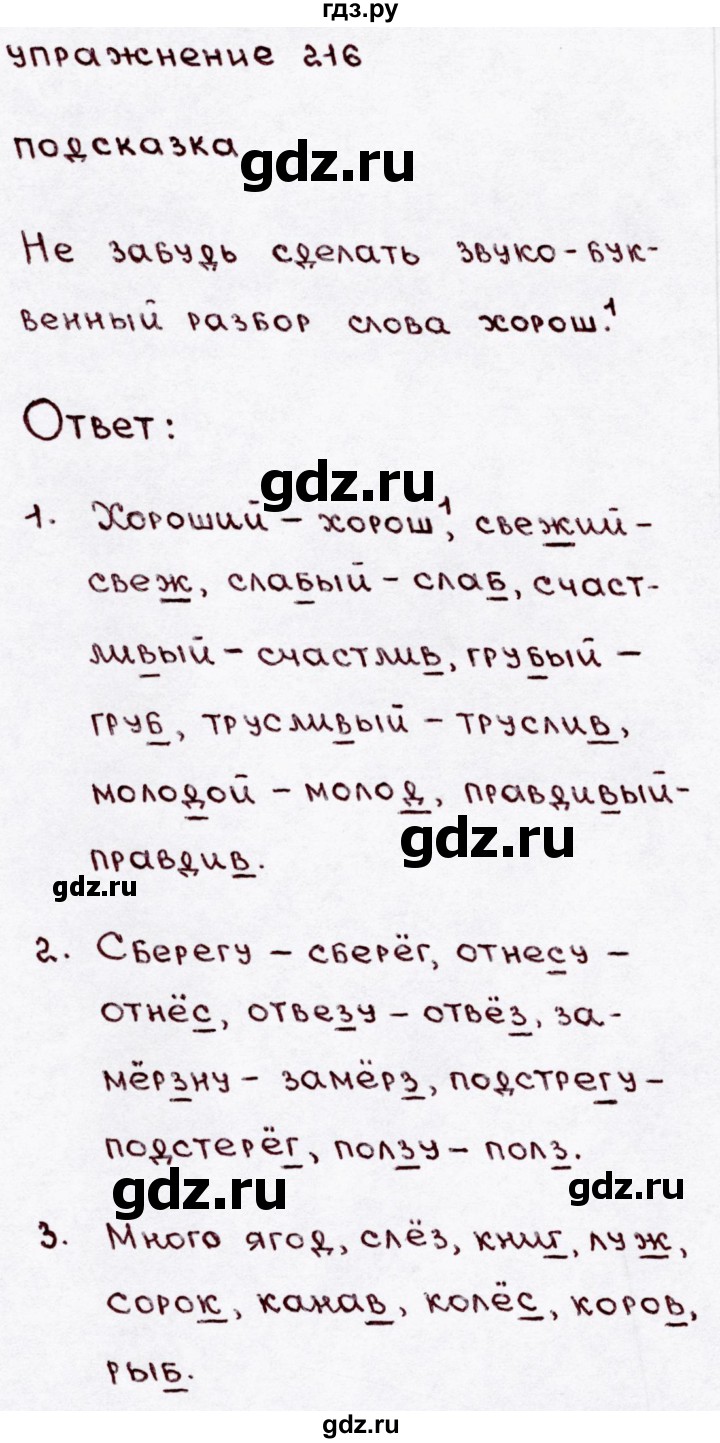 гдз.ру
упражнение 216
подсказка
gdz.ru
Не забудь сделать звуко-бук-
венный разбор слова хорош.¹
Ответ:
gdz.ru
1. Хороший - хорош¹, свежий -
свеж, слабый - слаб, счаст-
ливый - счастлив, грубый -
груб, трусливый - труслив,
молодой - молод, правдивый-
gdz.ru
правдив.
gdz.ru
2. Сберегу - сберёг, отнесу -
отнёс, отвезу - отвёз, за-
мёрзну - замёрз, подстрегу -
подстерёг, ползу - полз.
gdz.ru
gdz.ru
3. Много ягод, слёз, книг, луж,
сорок, канав, колёс, коров,
рыб.
gdz.ru